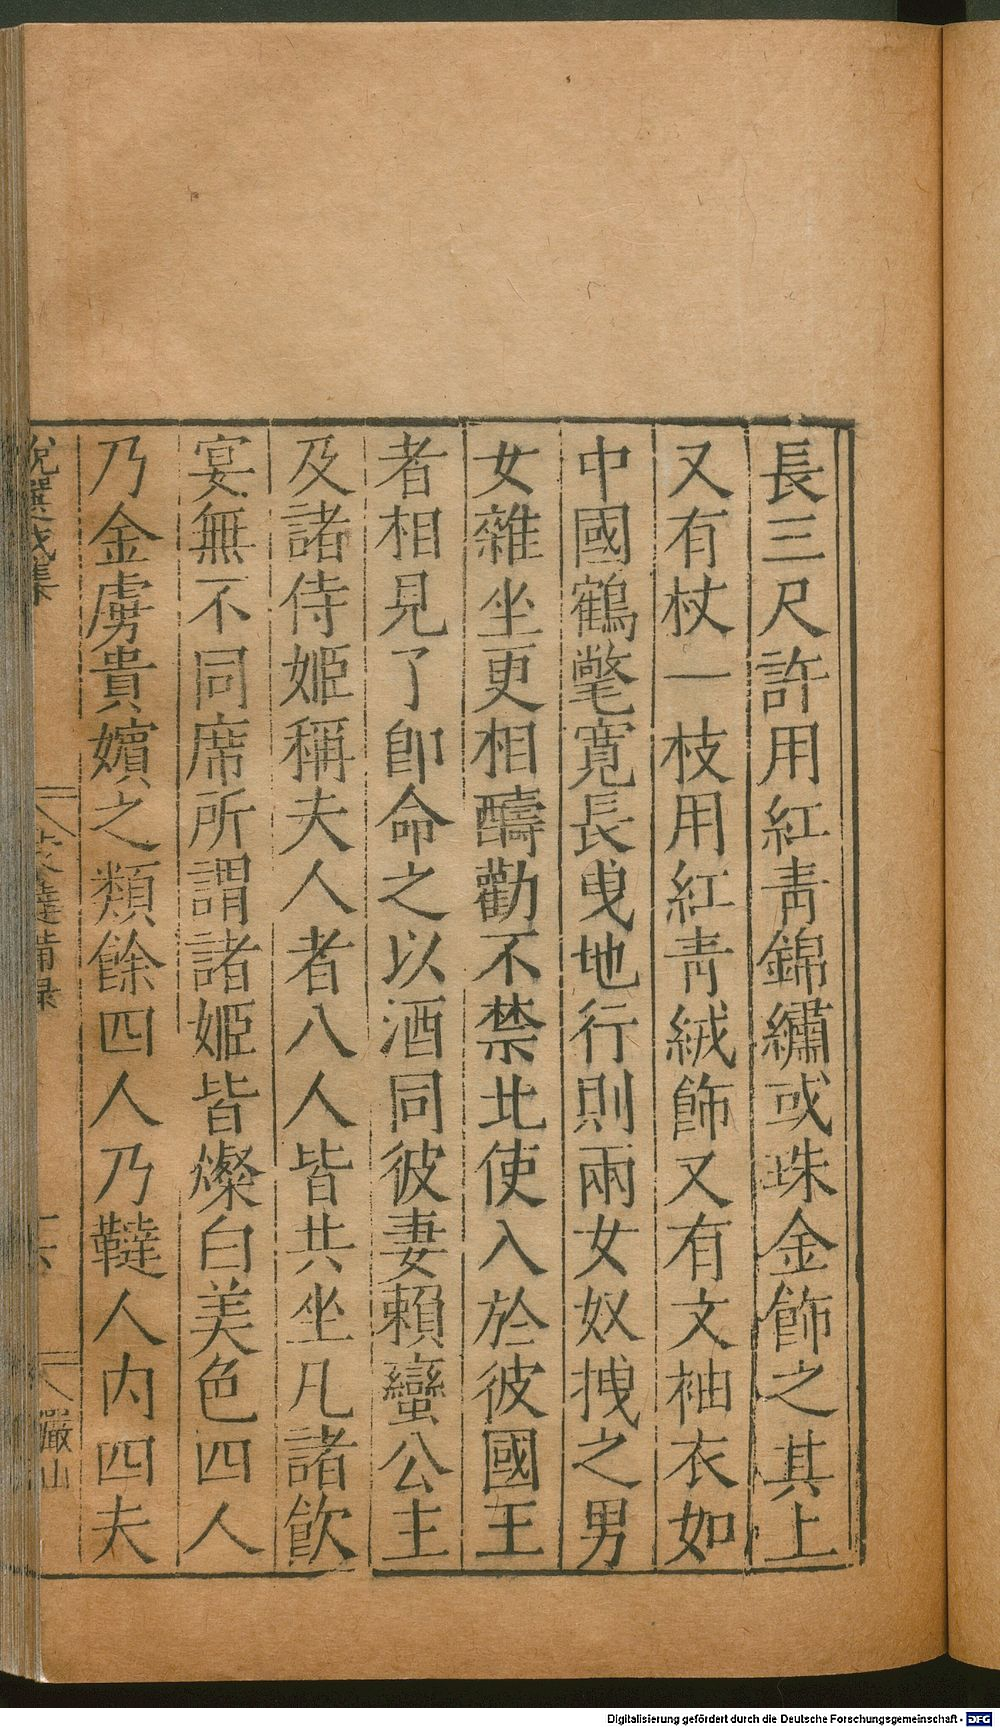 長三尺許用紅靑錦繡或珠金飾之其上
又有杖一枝用紅靑絨飾又有文袖衣如
中國鶴氅寛長曳地行則兩女奴拽之男
女雜坐更相醻勸不禁北使入於彼國王
者相見了卽命之以酒同彼妻賴蠻公主
及諸侍姬稱夫人者八人皆共坐凡諸飮
宴無不同席所謂諸姬皆燦白美色四人
乃金虜貴嬪之類餘四人乃韃人內四夫
蒙韃備錄
十六
儼山
Digitalisierung gefördert durch die Deutsche Forschungsgemeinschaft - DFG